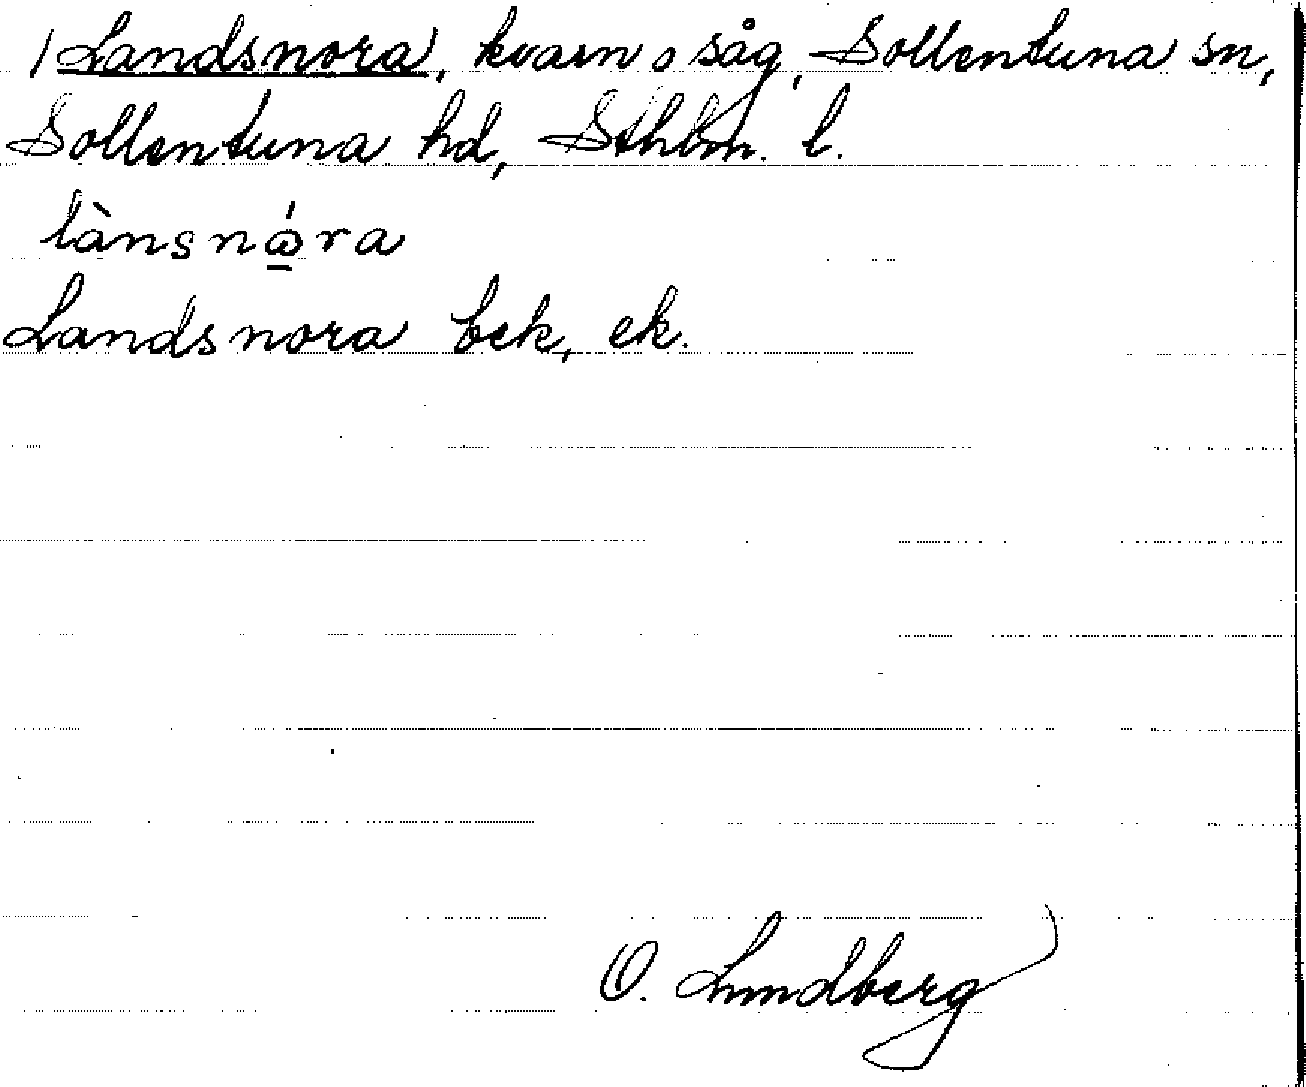 /Landsnora/, kvarn o såg, Sollentuna sn,
Sollentuna hd, Sthlm. l.
Landsnora bek, ek.
O. Lundberg